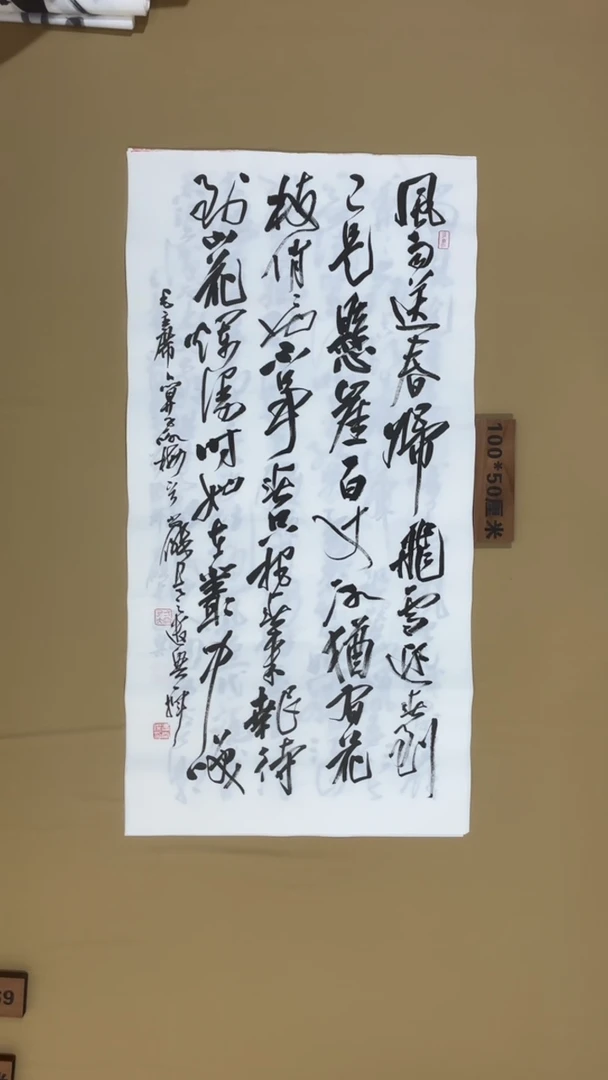 風雨送春歸飛雪迎春到
已是懸崖百丈冰猶有花
枝俏〻也不爭春只把春來報待
到山花爛漫時她在叢中笑
毛主席卜算子詠梅
100*50厘米
69